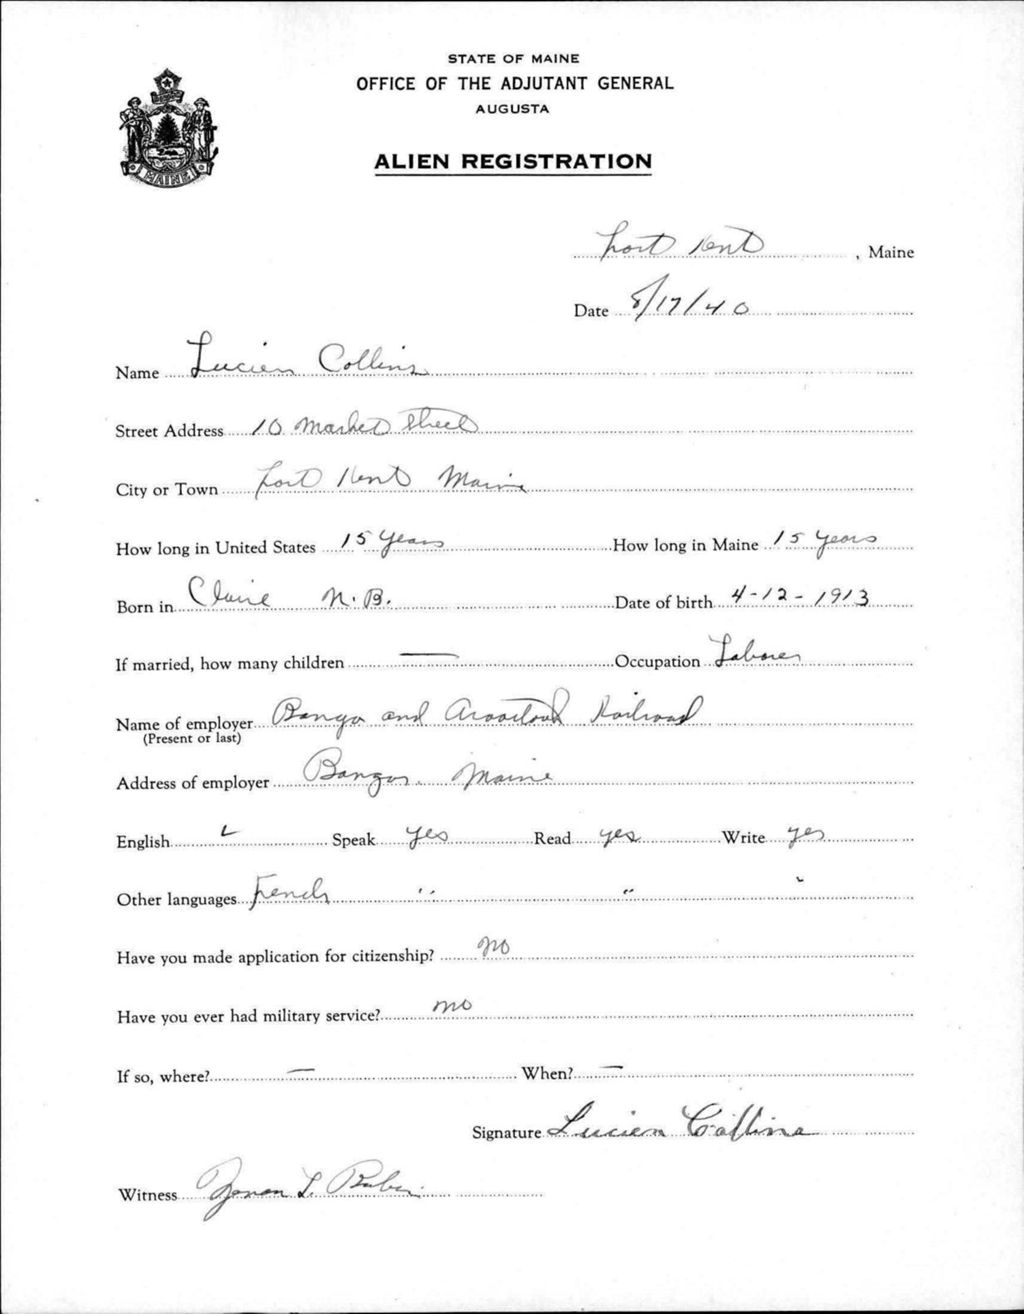 STATE OF MAINE
OFFICE OF THE ADJUTANT GENERAL
AUGUSTA
ALIEN REGISTRATION
MAINE
Fort Kent, Maine
Date 8/17/40
Name Lucien Collins
Street Address 10 Market Street
City or Town Fort Kent Maine
How long in United States 15 years How long in Maine 15 years
Born in Claire N.B. Date of birth 4-12-1913
If married, how many children — Occupation Laborer
Name of employer Bangor and Aroostook Railroad
(Present or last)
Address of employer Bangor Maine
English ✓ Speak yes Read yes Write yes
Other languages French " " "
Have you made application for citizenship? no
Have you ever had military service? no
If so, where? — When? —
Signature Lucien Collins
Witness L.